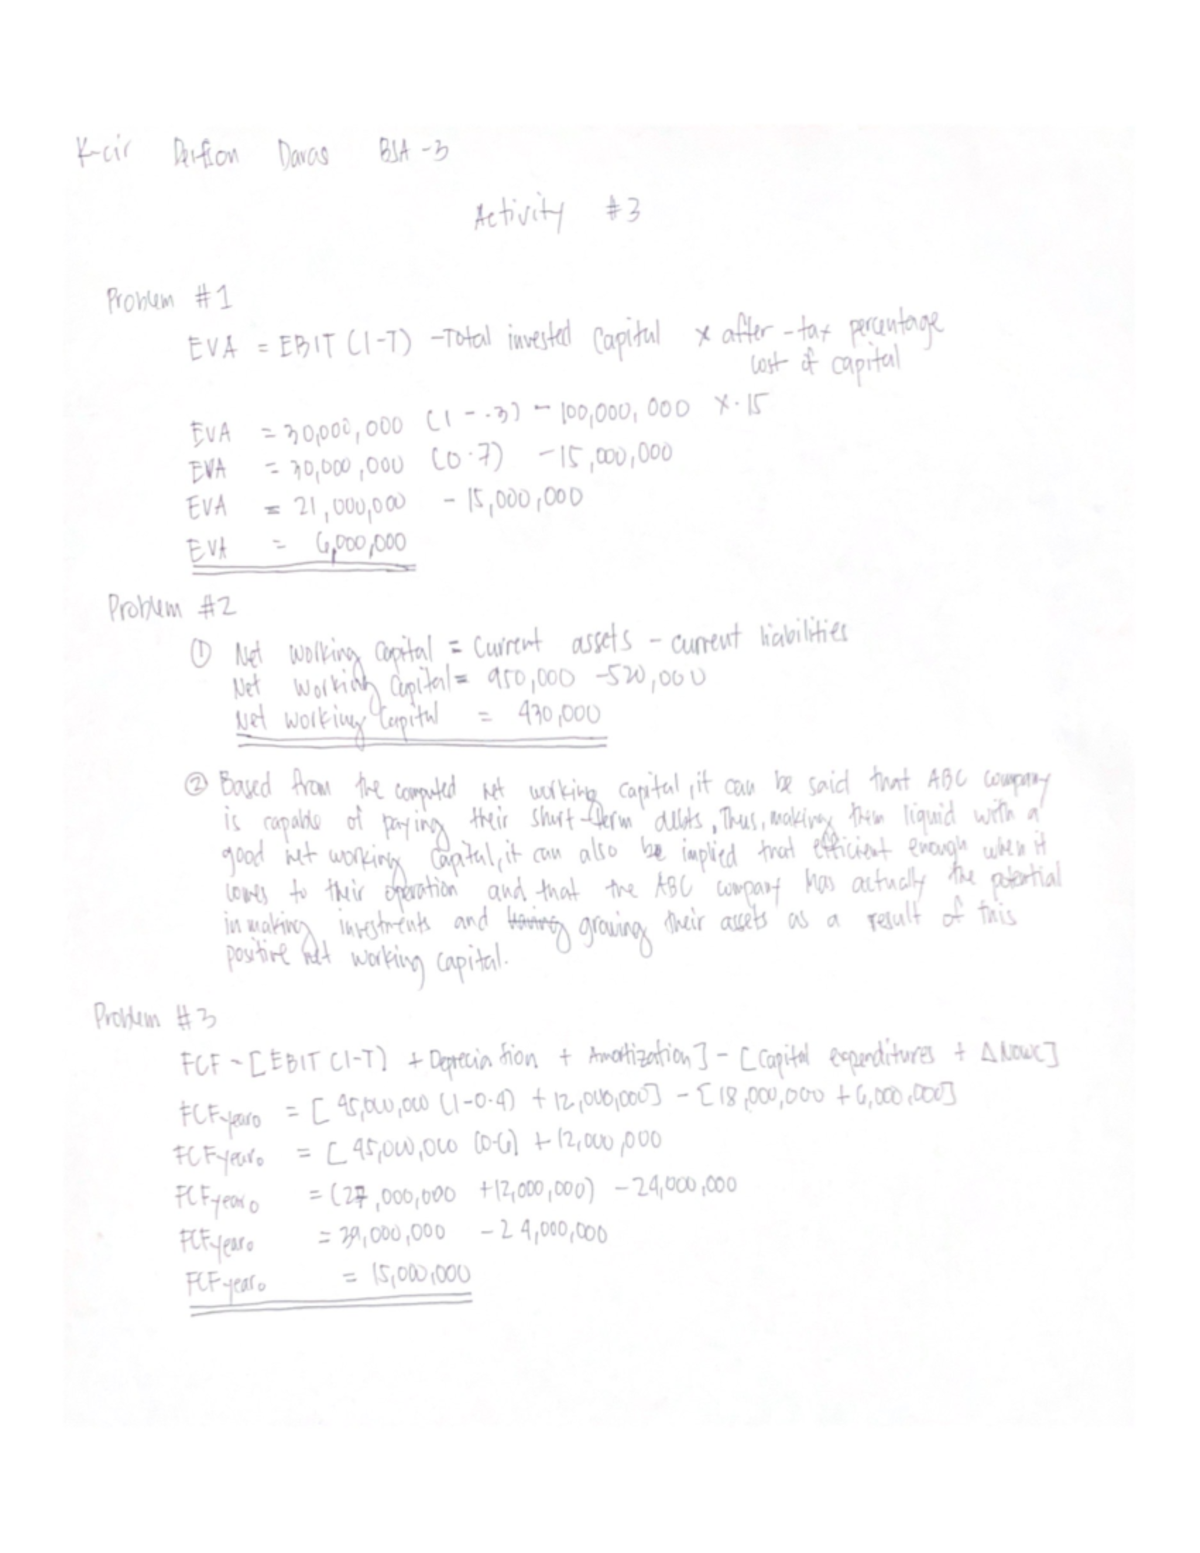 K-cir Daras BSA-3
Activity #3
Problem #1
EVA = EBIT (1-T) - Total invested Capital x after-tax percentage
cost of capital
EVA = 30,000,000 (1 - .3) - 100,000,000 x .15
EVA = 30,000,000 (0.7) - 15,000,000
EVA = 21,000,000 - 15,000,000
EVA = 6,000,000
Problem #2
① Net working capital = Current assets - current liabilities
Net Working Capital = 950,000 - 520,000
Net working Capital = 430,000
② Based from the computed net working capital, it can be said that ABC company
is capable of paying their short-term debts, Thus, making them liquid with a
good net working capital, it can also be implied that efficient enough when it
comes to their operation and that the ABC company has actually the potential
in making investments and having growing their assets as a result of this
positive net working capital.
Problem #3
FCF = [EBIT (1-T) + Depreciation + Amortization] - [Capital expenditures + ΔNOWC]
FCFyear0 = [45,000,000 (1-0.4) + 12,000,000] - [18,000,000 + 6,000,000]
FCFyear0 = [45,000,000 (0.6] + 12,000,000
FCFyear0 = (27,000,000 + 12,000,000) - 24,000,000
FCFyear0 = 39,000,000 - 24,000,000
FCFyear0 = 15,000,000